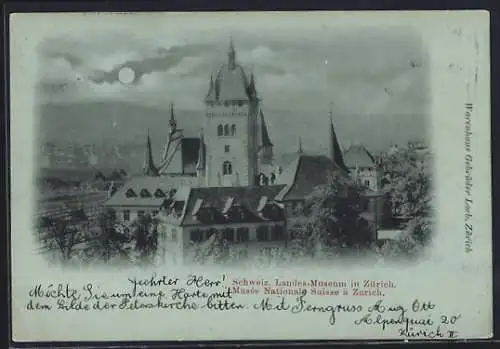 Warenhaus Gebrüder Lorb, Zürich
Schweiz. Landes-Museum in Zürich.
Musée National Suisse à Zurich.
geehrter Herr!
Möchte Sie um eine Karte mit
dem Bilde der Peterskirche bitten. Mit Ferngruss Aug Ott
Alpenquai 20
Zürich II